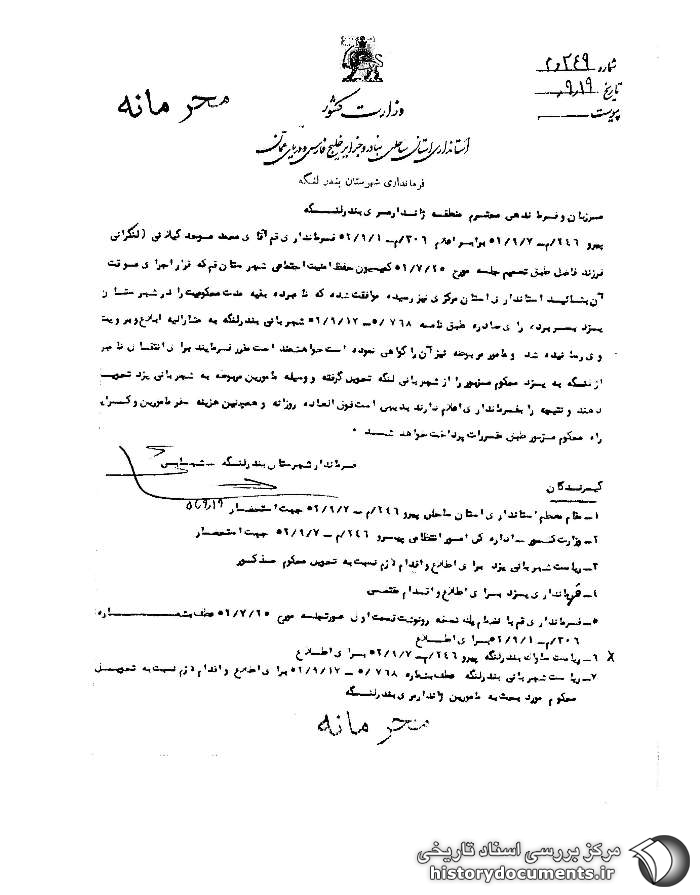 شماره ۲۴۹
تاریخ ۹،۱۹
پیوست
محرمانه
وزارت کشور
استانداری استان ساحلی بنادر و جزایر خلیج فارس و دریای عمان
فرمانداری شهرستان بندر لنگه
مرزبان و فرماندهی محترم منطقه ژاندارمری بندرلنگه
پیرو ۲۴۶/م-۵۲/۹/۷ برابر اعلام ۳۰۶/م-۵۲/۹/۱ فرمانداری قم آقای محمد موحد (لنکرانی
فرزند فاضل طبق تصمیم جلسه مورخ ۵۲/۷/۲۵ کمیسیون حفظ امنیت اجتماعی شهرستان قم که قرار اجرای موقت
آن بتائید استانداری استان مرکزی نیز رسیده موافقت شده که نامبرده بقیه مدت محکومیت را در شهرستان
یزد بسر برد، رای صادره طبق نامه ۵/۷۶۸-۵۲/۹/۱۷ شهربانی بندرلنگه به مشارالیه ابلاغ و برویت
وی رسانیده شد و مامور مربوطه نیز آن را گواهی نموده است خواهشمند است مقرر فرمایند برای انتقال نامبرده
از لنگه به یزد محکوم مزبور را از شهربانی لنگه تحویل گرفته و وسیله مامورین مربوطه به شهربانی یزد تحویل
دهند و نتیجه را بفرمانداری اعلام دارند بدیهی است فوق العاده روزانه و همچنین هزینه سفر مامورین و کرایه
راه محکوم مزبور طبق مقررات پرداخت خواهد شد.
فرماندار شهرستان بندرلنگه -
گیرندگان
۱- مقام معظم استانداری استان ساحلی پیرو ۲۴۶/م-۵۲/۹/۷ جهت استحضار
۲- وزارت کشور - اداره کل امور انتظامی پیرو ۲۴۶/م-۵۲/۹/۷ جهت استحضار
۳- ریاست شهربانی یزد برای اطلاع و اقدام لازم نسبت به تحویل محکوم مذکور
۴- فرمانداری یزد برای اطلاع و اقدام مقتضی
۵- فرمانداری قم با انضمام یک نسخه رونوشت قسمت اول صورتجلسه مورخ ۵۲/۷/۲۵ عطف بشماره
۳۰۶/م-۵۲/۹/۱ برای اطلاع
۶- ریاست ساواک بندرلنگه پیرو ۲۴۶/م-۵۲/۹/۷ برای اطلاع
۷- ریاست شهربانی بندرلنگه عطف بشماره ۵/۷۶۸-۵۲/۹/۱۷ برای اطلاع و اقدام لازم نسبت به تحویل
محکوم مورد بحث به مامورین ژاندارمری بندرلنگه
محرمانه
مرکز بررسی اسناد تاریخی
historydocuments.ir